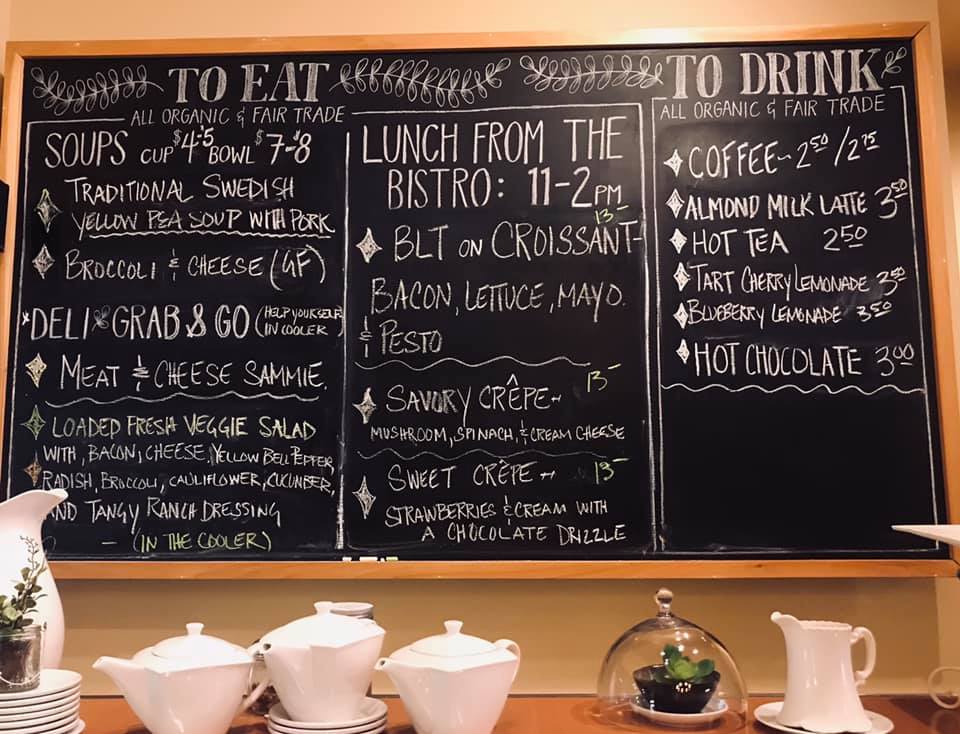 TO EAT
ALL ORGANIC & FAIR TRADE
SOUPS CUP $4-5 BOWL $7-8
TRADITIONAL SWEDISH
YELLOW PEA SOUP WITH PORK
BROCCOLI & CHEESE (GF)
DELI GRAB & GO (HELP YOURSELF
IN COOLER)
MEAT & CHEESE SAMMIE.
LOADED FRESH VEGGIE SALAD
WITH, BACON, CHEESE, YELLOW BELL PEPPER,
RADISH, BROCCOLI, CAULIFLOWER, CUCUMBER,
AND TANGY RANCH DRESSING
- (IN THE COOLER)
LUNCH FROM THE
BISTRO: 11-2 PM
BLT ON CROISSANT 13-
BACON, LETTUCE, MAYO.
& PESTO
SAVORY CRÊPE~ 13-
MUSHROOM, SPINACH, & CREAM CHEESE
SWEET CRÊPE ~ 13-
STRAWBERRIES & CREAM WITH
A CHOCOLATE DRIZZLE
TO DRINK
ALL ORGANIC & FAIR TRADE
COFFEE~ 2.50 / 2.75
ALMOND MILK LATTE 3.50
HOT TEA 2.50
TART CHERRY LEMONADE 3.50
BLUEBERRY LEMONADE 3.50
HOT CHOCOLATE 3.00